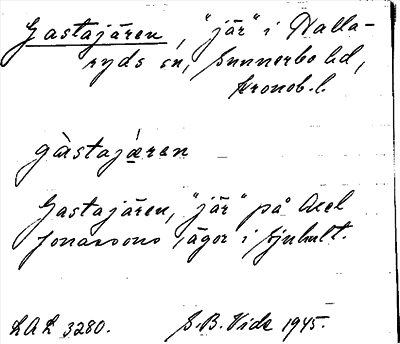 Gastajären, "jär" i Halla-
ryds sn, Sunnerbo hd,
Kronob. l.
gàstajǽren
Gastajären, "jär" på Axel
Jonassons ägor i Ljuhult.
LAL 3280. S.B. Vide 1945.